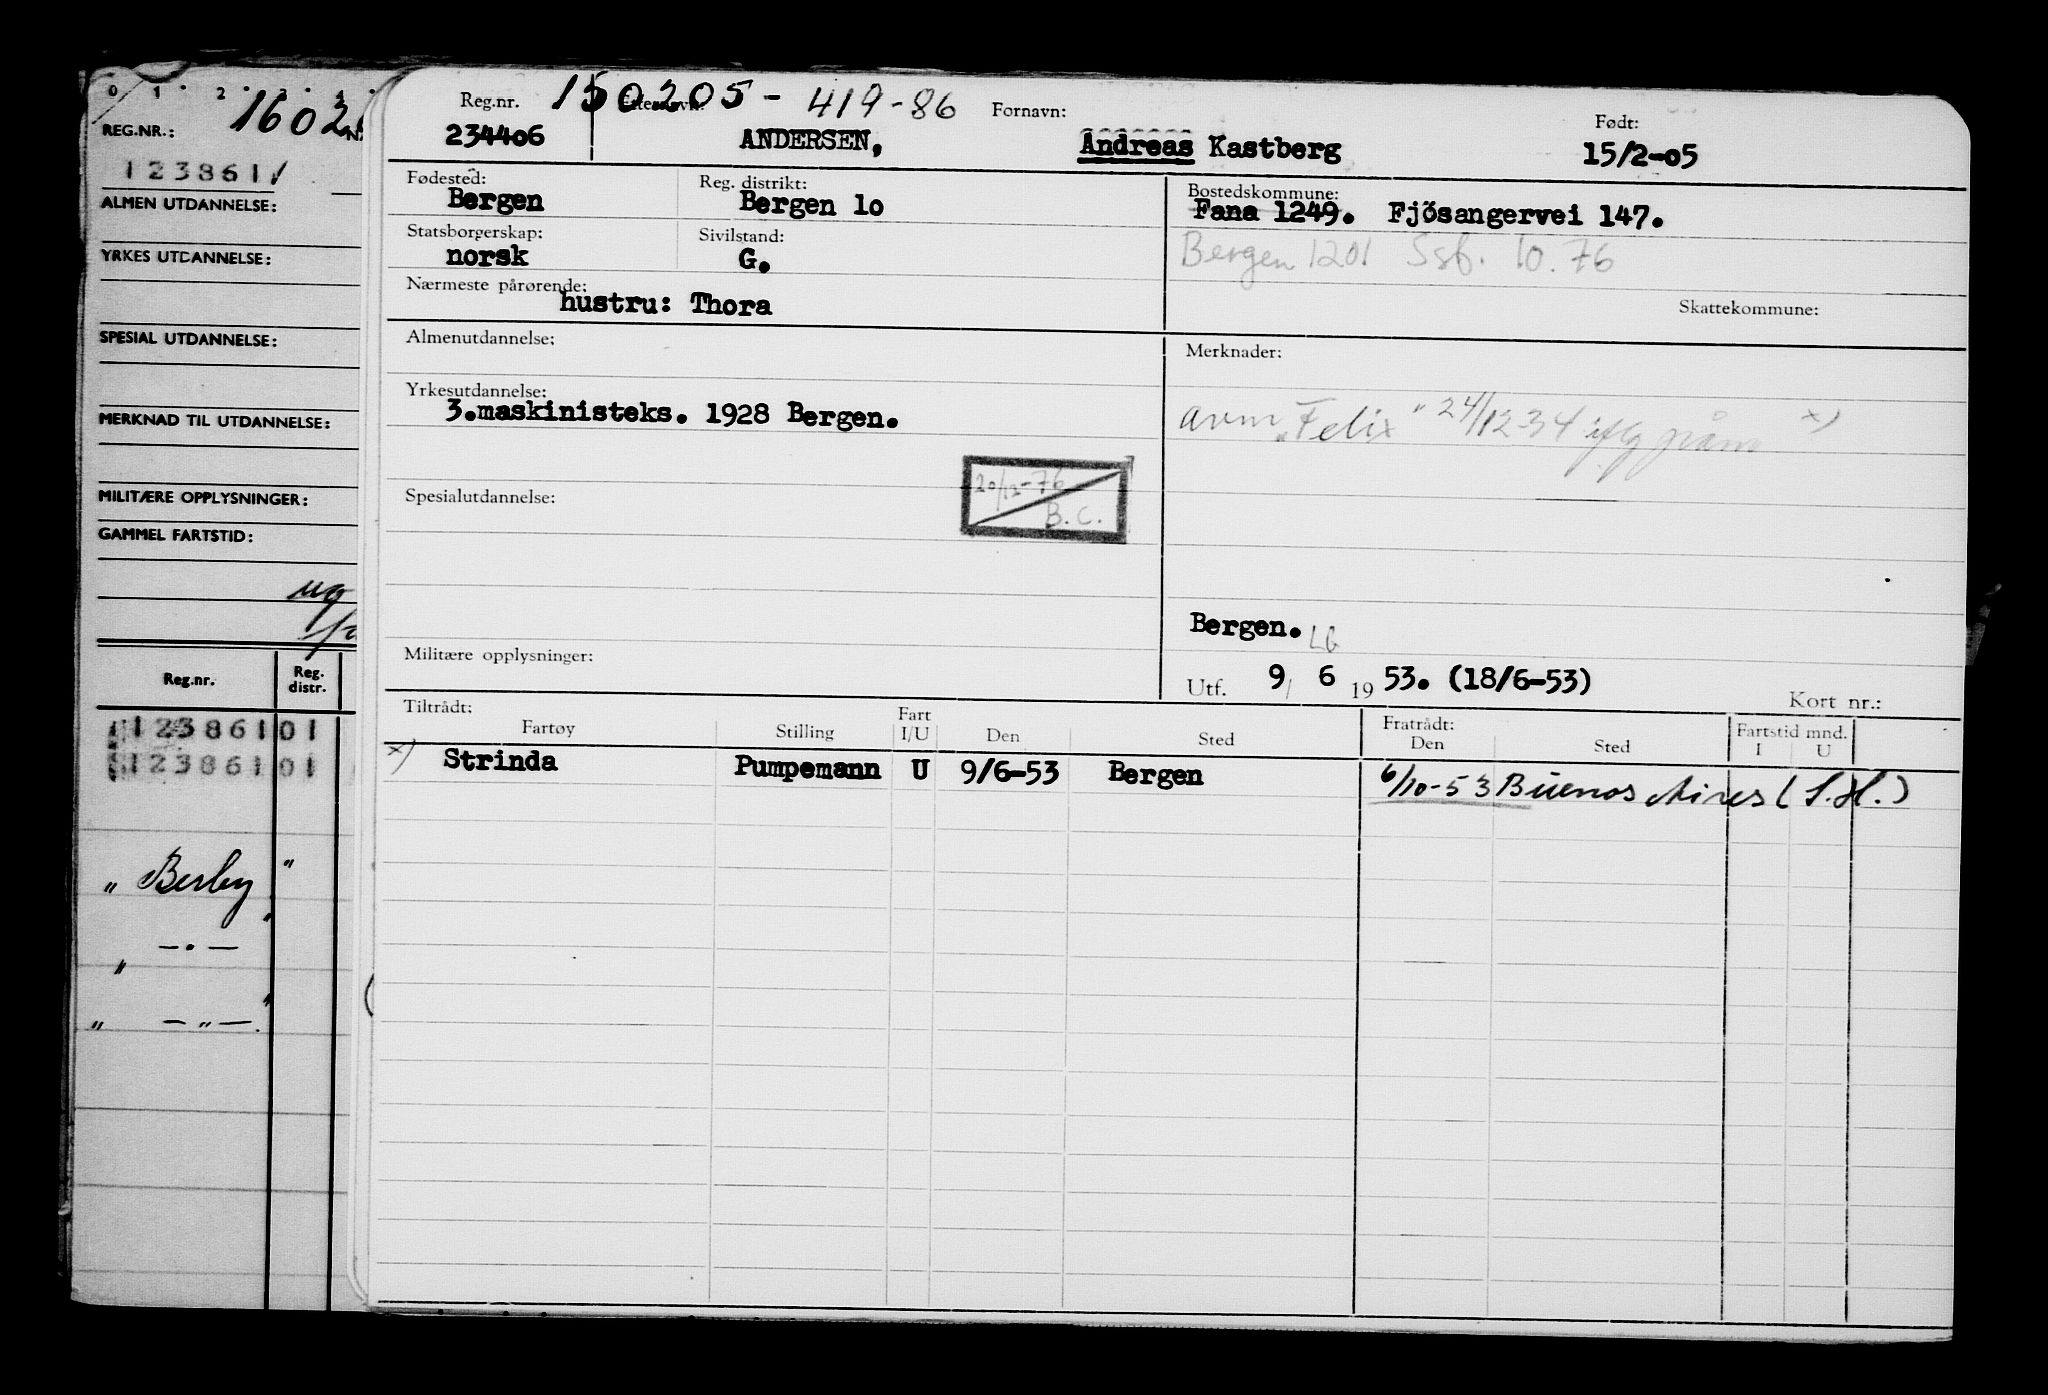 0 1 2 3 4
REG.NR.:
123861
ALMEN UTDANNELSE:
YRKES UTDANNELSE:
SPESIAL UTDANNELSE:
MERKNAD TIL UTDANNELSE:
MILITÆRE OPPLYSNINGER:
GAMMEL FARTSTID:
Reg.nr. Reg. distr.
123861 01
123861 01
" Berby "
" — " —
" — " —
150205 - 419-86
Reg.nr. Etternavn: Fornavn: Født:
234406 ANDERSEN, Andreas Kastberg 15/2-05
Fødested: Reg. distrikt: Bostedskommune:
Bergen Bergen 10 Fana 1249. Fjösangervei 147.
Statsborgerskap: Sivilstand: Bergen 1201 Ssf. 10.76
norsk G.
Nærmeste pårørende: Skattekommune:
hustru: Thora
Almenutdannelse: Merknader:
Yrkesutdannelse:
3.maskinisteks. 1928 Bergen. "Felix" 24/12-34 x)
Spesialutdannelse: 20/12-76
B.C.
Bergen. LG
Militære opplysninger:
Utf. 9/ 6 19 53. (18/6-53) Kort nr.:
Tiltrådt: Fart Fratrådt: Fartstid mnd.
Fartøy Stilling I/U Den Sted Den Sted I U
x) Strinda Pumpemann U 9/6-53 Bergen 6/10-53 Buenos Aires (S.H.)